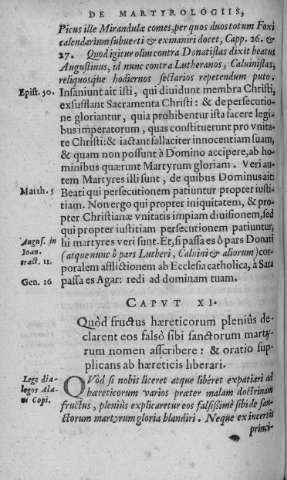 DE MARTYROLOGIIS,
Picus ille Mirandulæ comes, per quos duos totum Foxi
calendarium subuerti & exinaniri docet, Capp. 26. &
27. Quod igitur olim contra Donatistas dixit beatus
Augustinus, id nunc contra Lutheranos, Caluinistas,
reliquosque hodiernos sectarios repetendum puto.
Epist. 50. Insaniunt ait isti, qui diuidunt membra Christi,
exsufflant Sacramenta Christi: & de persecutio-
ne gloriantur, quia prohibentur ista facere legi-
bus imperatorum, quas constituerunt pro vnita-
te Christi: & iactant fallaciter innocentiam suam,
& quam non possunt à Domino accipere, ab ho-
minibus quærunt Martyrum gloriam. Veri au-
tem Martyres illi sunt, de quibus Dominus ait:
Matth. 5 Beati qui persecutionem patiuntur propter iusti-
tiam. Non ergo qui propter iniquitatem, & pro-
pter Christianæ vnitatis impiam diuisionem, sed
qui propter iustitiam persecutionem patiuntur,
August. in hi martyres veri sunt. Et, si passa es ô pars Donati
Ioan. (atque nunc ô pars Lutheri, Caluini & aliorum) cor-
tract. 11. poralem afflictionem ab Ecclesia catholica, à Sara
Gen. 16 passa es Agar: redi ad dominam tuam.
CAPVT XI.
Quòd fructus hæreticorum pleniùs de-
clarent eos falsò sibi sanctorum marty-
rum nomen asscribere: & oratio sup-
plicans ab hæreticis liberari.
Lege dia- QVòd si nobis liceret atque libéret expatiari ad
logos Ala- hæreticorum varios præter malam doctrinam
ni Copi. fructus, pleniùs explicaretur eos falsissimè sibi de san-
ctorum martyrum gloria blandiri. Neque ex incertis
princi-